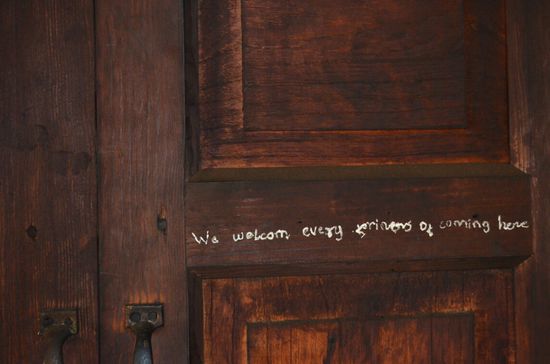 We welcom every of coming here